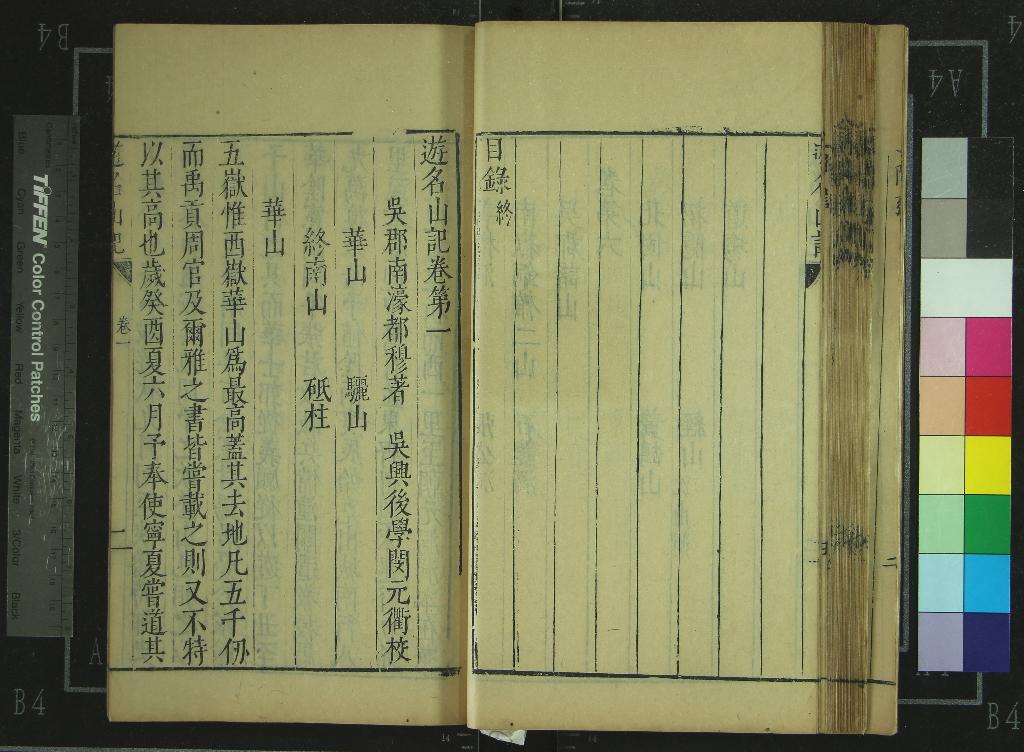 目錄終
遊名山記卷第一
吳郡南濠都穆著 吳興後學閔元衢校
華山 驪山
終南山 砥柱
華山
五嶽惟西嶽華山爲最高蓋其去地凡五千仞
而禹貢周官及爾雅之書皆嘗載之則又不特
以其高也歲癸酉夏六月予奉使寧夏嘗道其
遊名山記
卷一
一
TIFFEN Color Control Patches
Blue
Cyan
Green
Yellow
Red
Magenta
White
3/Color
Black
B4
A4
A
B4
B4